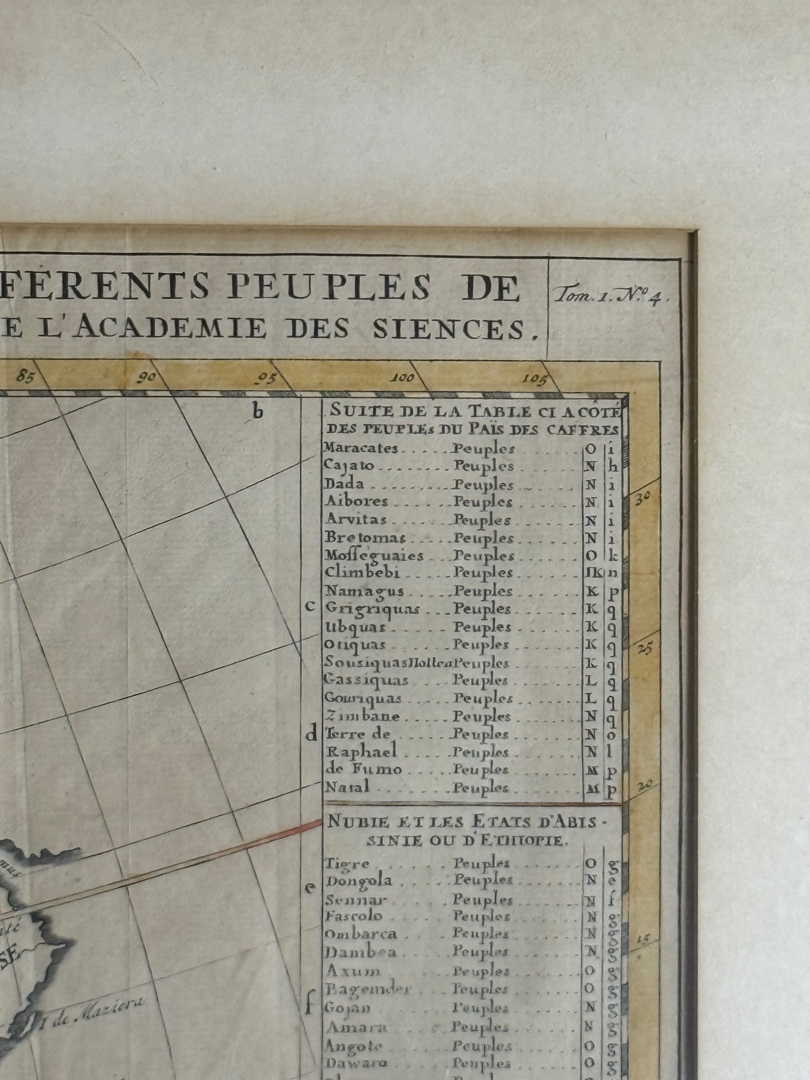 FÉRENTS PEUPLES DE
E L'ACADEMIE DES SIENCES.
Tom. 1. N.º 4.
85 90 95 100 105
b
SUITE DE LA TABLE CI A CÔTÉ
DES PEUPLES DU PAÏS DES CAFFRES
Maracates.....Peuples......O i
Cajato........Peuples......N h
Dada.........Peuples......N i
Aibores......Peuples......N i
Arvitas......Peuples......N i
Bretomas.....Peuples......N i
Mosseguaies...Peuples......O k
Climbebi.....Peuples......IK n
30
Namagus.....Peuples......K p
c
Grigriquas...Peuples......K q
Ubquas......Peuples......K q
Otiquas.....Peuples......K q
Sousiquas Peuples......K q
25
Gassiquas....Peuples......L q
Gouriquas....Peuples......L q
Zimbane.....Peuples......N q
d
Terre de....Peuples......N o
Raphael.....Peuples......N l
de Fumo....Peuples......M p
Natal......Peuples......M p
20
NUBIE ET LES ETATS D'ABIS-
SINIE OU D'ETHIOPIE.
Tigre......Peuples......O g
e
Dongola....Peuples......N e
Sennar.....Peuples......N f
Fascolo....Peuples......N g
Ombarca....Peuples......N g
Dambea.....Peuples......N g
15
Axum......Peuples......O g
Bagemder...Peuples......O g
f
Gojan.....Peuples......N g
Amara.....Peuples......N g
Angote....Peuples......O g
Dawaro....Peuples......O g
I de Maziera